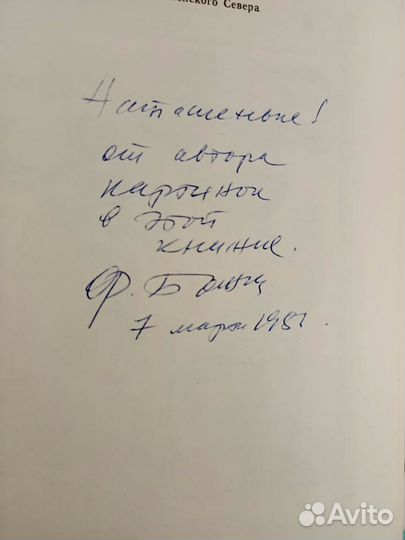 нского Севера
Наташеньке!
от автора
картинок
в этой
книжке.
7 марта 1981.
Avito